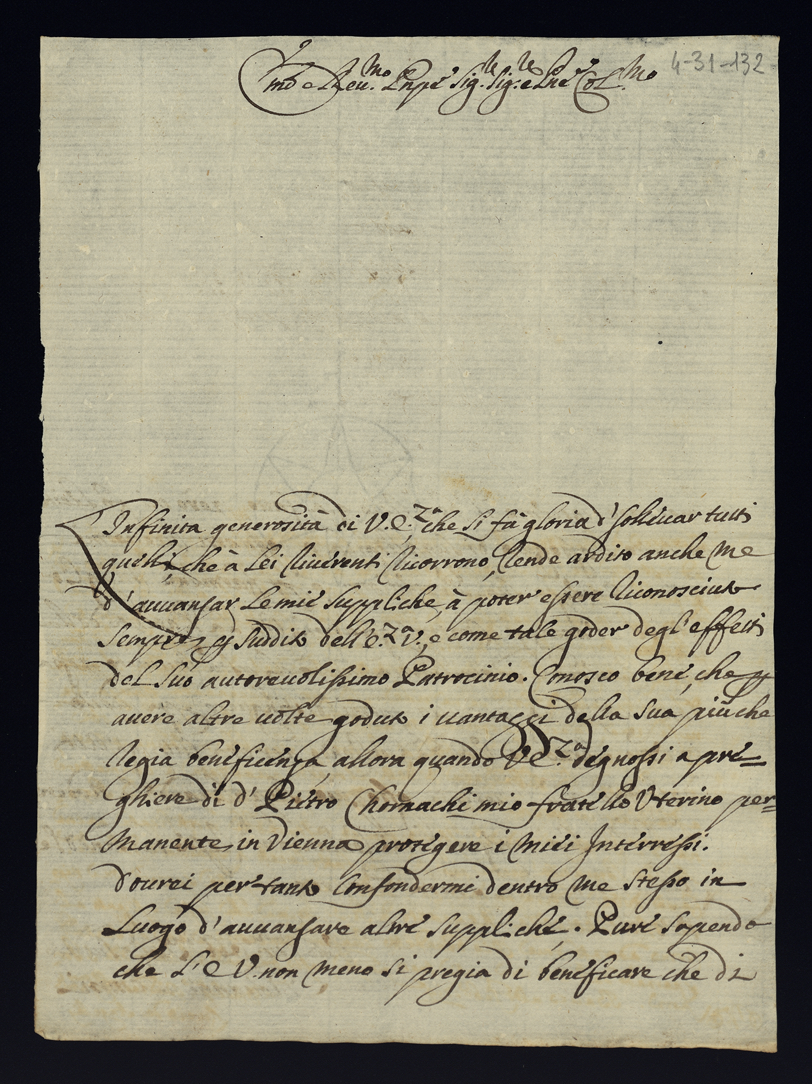 Ill.mo e Reu.mo Pnpe Sig.re Sig.re e Pne Col.mo
4-31-132
L'Infinita generosità di V. E.za che si fà gloria d'solleuar tutti
quelli, che à Lei riuerenti ricorrono, rende ardito anche me
d'auuansar le mie suppliche, à poter essere riconosciuto
sempre ꝑ suddito dell'E.za V., e come tale goder degl'effetti
del suo autoreuolissimo Patrocinio. Conosco bene, che ꝑ
auere altre uolte goduto i uantaggi della sua più che
regia beneficenza, allora quando V. E.za degnossi a pre=
ghiere di d' Pietro Chomachi mio fratello Uterino per=
manente in Vienna protegere i miei Interressi.
dourei per tanto confondermi dentro me stesso in
Luogo d'auuansare altre suppliche. Pure sapendo
che L'E V. non meno si pregia di beneficare che di